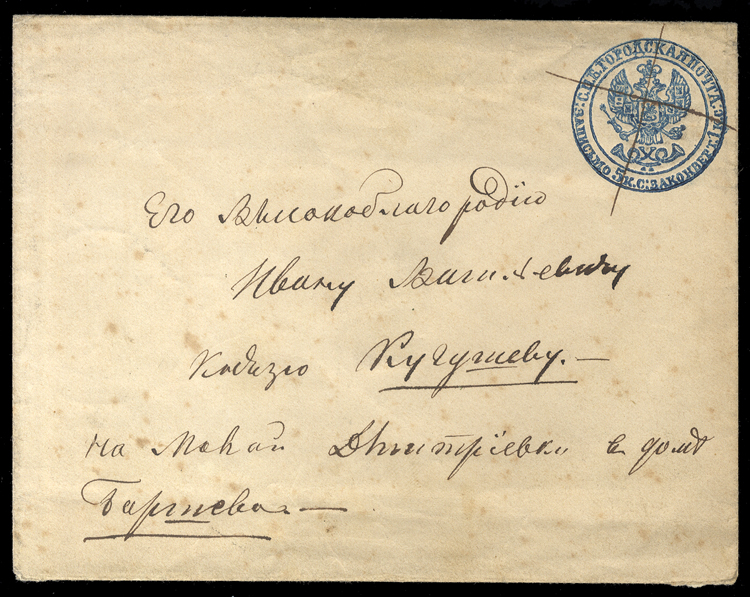 С.П.Б. ГОРОДСКАЯ ПОЧТА:
ЗА ПИСЬМО. 5 К. С: ЗА КОНВЕРТ. 1
Его Высокоблагородію
Ивану
Князю Кугушеву. —
на Малой Дмитріевкѣ въ домѣ
Баршева. —